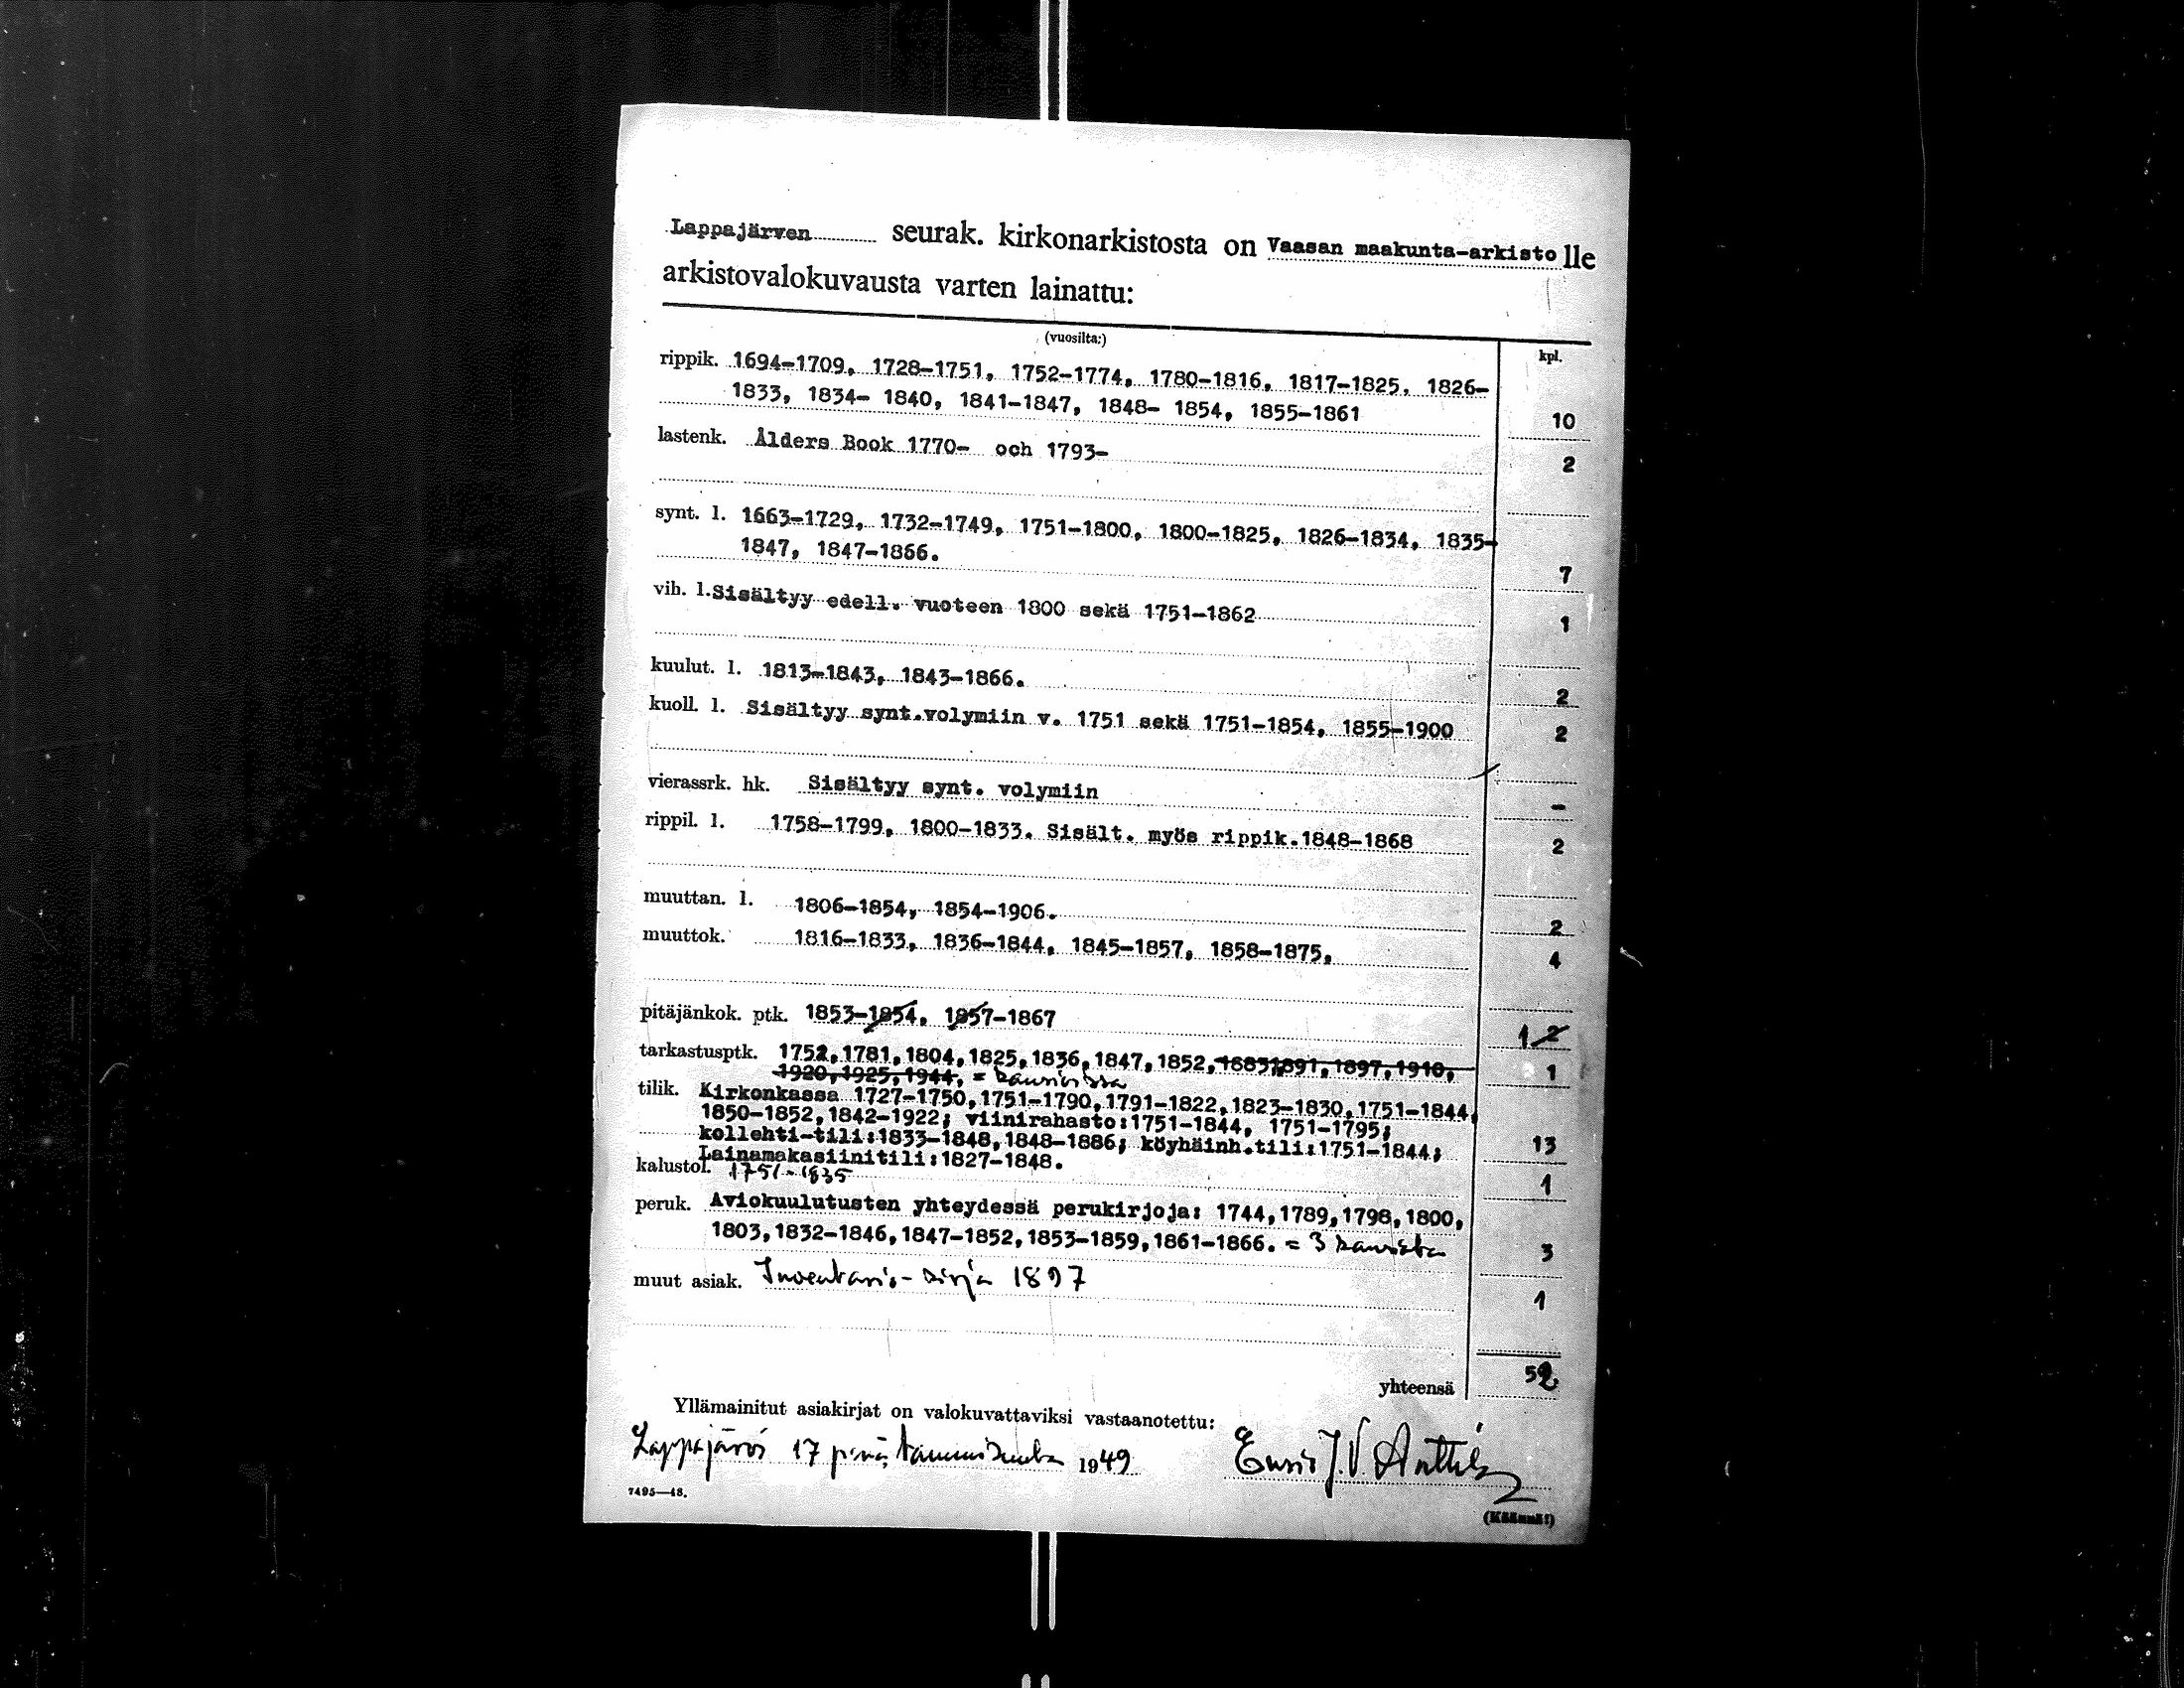 Lappajärven seurak. kirkonarkistosta on Vaasan maakunta-arkisto lle
arkistovalokuvausta varten lainattu:
(vuosilta:) kpl.
rippik. 1694-1709, 1728-1751, 1752-1774, 1780-1816, 1817-1825, 1826-
1833, 1834- 1840, 1841-1847, 1848- 1854, 1855-1861 10
lastenk. Ålders Book 1770- och 1793- 2
synt. l. 1663-1729, 1732-1749, 1751-1800, 1800-1825, 1826-1834, 1835-
1847, 1847-1866. 7
vih. l. Sisältyy edell. vuoteen 1800 sekä 1751-1862 1
kuulut. l. 1813-1843, 1843-1866. 2
kuoll. l. Sisältyy synt.volymiin v. 1751 sekä 1751-1854, 1855-1900 2
vierassrk. hk. Sisältyy synt. volymiin -
rippil. l. 1758-1799, 1800-1833. Sisält. myös rippik.1848-1868 2
muuttan. l. 1806-1854, 1854-1906. 2
muuttok. 1816-1833, 1836-1844, 1845-1857, 1858-1875, 4
pitäjänkok. ptk. 1853-1854, 1857-1867 1 2
tarkastusptk. 1752,1781,1804,1825,1836,1847,1852,1885,1891,1897,1910, 1
1920,1925,1944, =
tilik. Kirkonkassa 1727-1750,1751-1790,1791-1822,1823-1830,1751-1844,
1850-1852,1842-1922; viinirahasto:1751-1844, 1751-1795;
kollehti-tili:1833-1848,1848-1886; köyhäinh.tili:1751-1844; 13
Lainamakasiinitili:1827-1848.
kalustol. 1751-1835 1
peruk. Aviokuulutusten yhteydessä perukirjoja: 1744,1789,1798,1800,
1803,1832-1846,1847-1852,1853-1859,1861-1866. = 3 kansista 3
muut asiak. Inventario-kirja 1897 1
yhteensä 52
Yllämainitut asiakirjat on valokuvattaviksi vastaanotettu:
Lappajärvi 17 pnä tammikuuta 1949 J.V. Anttila
7495—48.
(Käännä!)